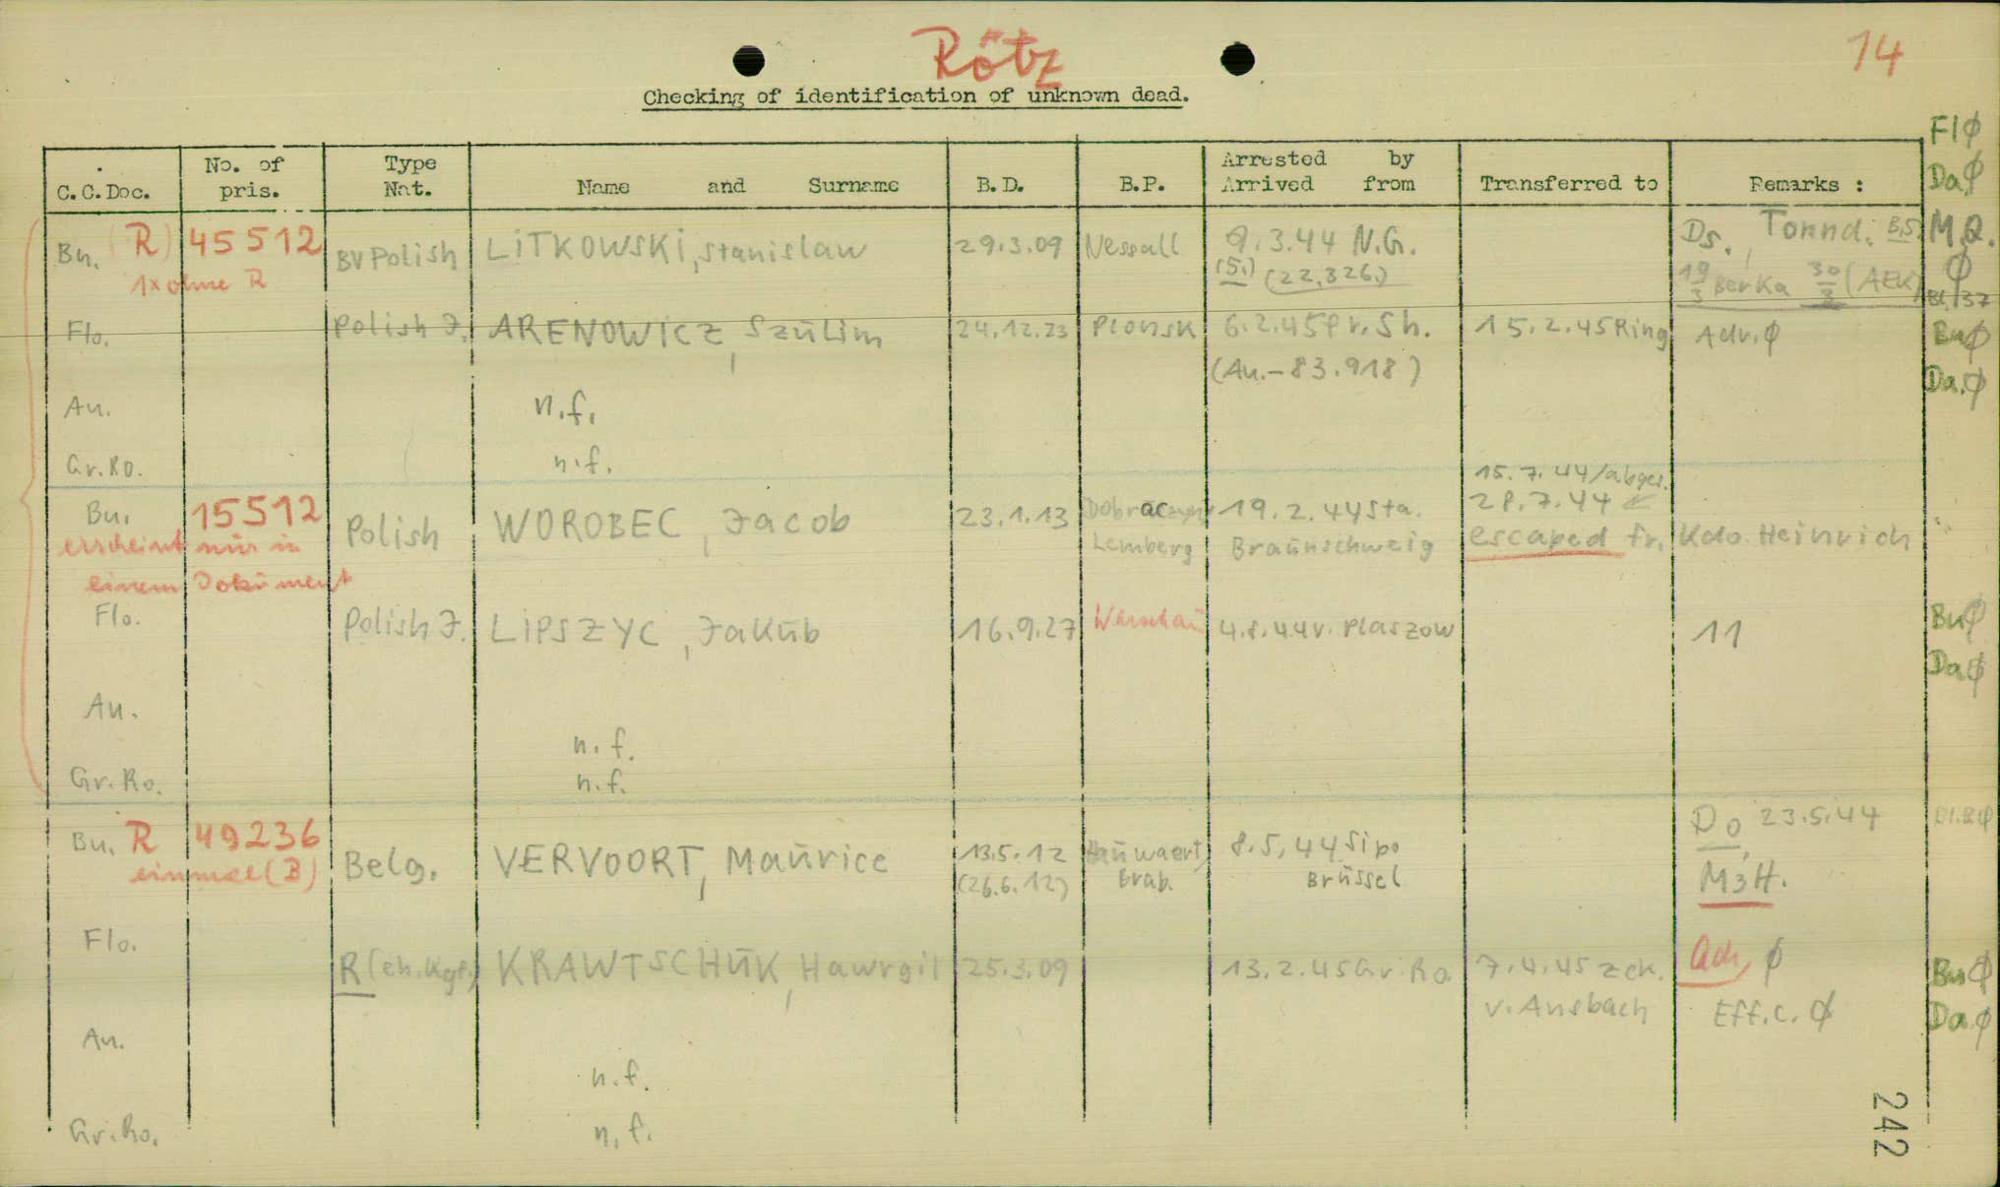 Rötz
14
Checking of identification of unknown dead.
C.C.Doc. No. of pris. Type Nat. Name and Surname B.D. B.P. Arrested by Arrived from Transferred to Remarks :
Flϕ
Daϕ
Bu. (R) 45512 BV Polish LITKOWSKI, Stanislaw 29.3.09 Nessall 9.3.44 N.G. Ds., Tonnd. B.S. M.Q.
1x ohne R (5.) (22.326.) 19/3 Berka 30/3 (AEK) ϕ
Bl.37
Flo. Polish J. ARENOWICZ, Szulim 24.12.23 Plonsk 6.2.45 Gr.Sh. 15.2.45 Ring Adr. ϕ Buϕ
(Au.-83.918) Da.ϕ
Au. n.f.
Gr.Ro. n.f.
15.7.44/abges.
Bu. 15512 Polish WOROBEC, Jacob 23.1.13 19.2.44 Sta. 28.7.44
erscheint nur in Lemberg Braunschweig escaped fr. Kdo. Heinrich
einem Dokument
Flo. Polish J. LIPSZYC, Jakub 16.9.27 Warschau 4.8.44 v. Plaszow 11 Buϕ
Daϕ
Au. n.f.
Gr.Ro. n.f.
Do, 23.5.44
Bu. R 49236 Belg. VERVOORT, Maurice 13.5.12 8.5.44 Sipo
einmal (B) (26.6.12) Brab. Brüssel M3H.
Flo. R (eh.Kgf.) KRAWTSCHUK, Hawrgil 25.3.09 13.2.45 Gr.Ro. 7.4.45 zck. Adr, ϕ Buϕ
v. Ansbach Eff.c. ϕ Daϕ
Au. n.f.
Gr.Ro. n.f.
242